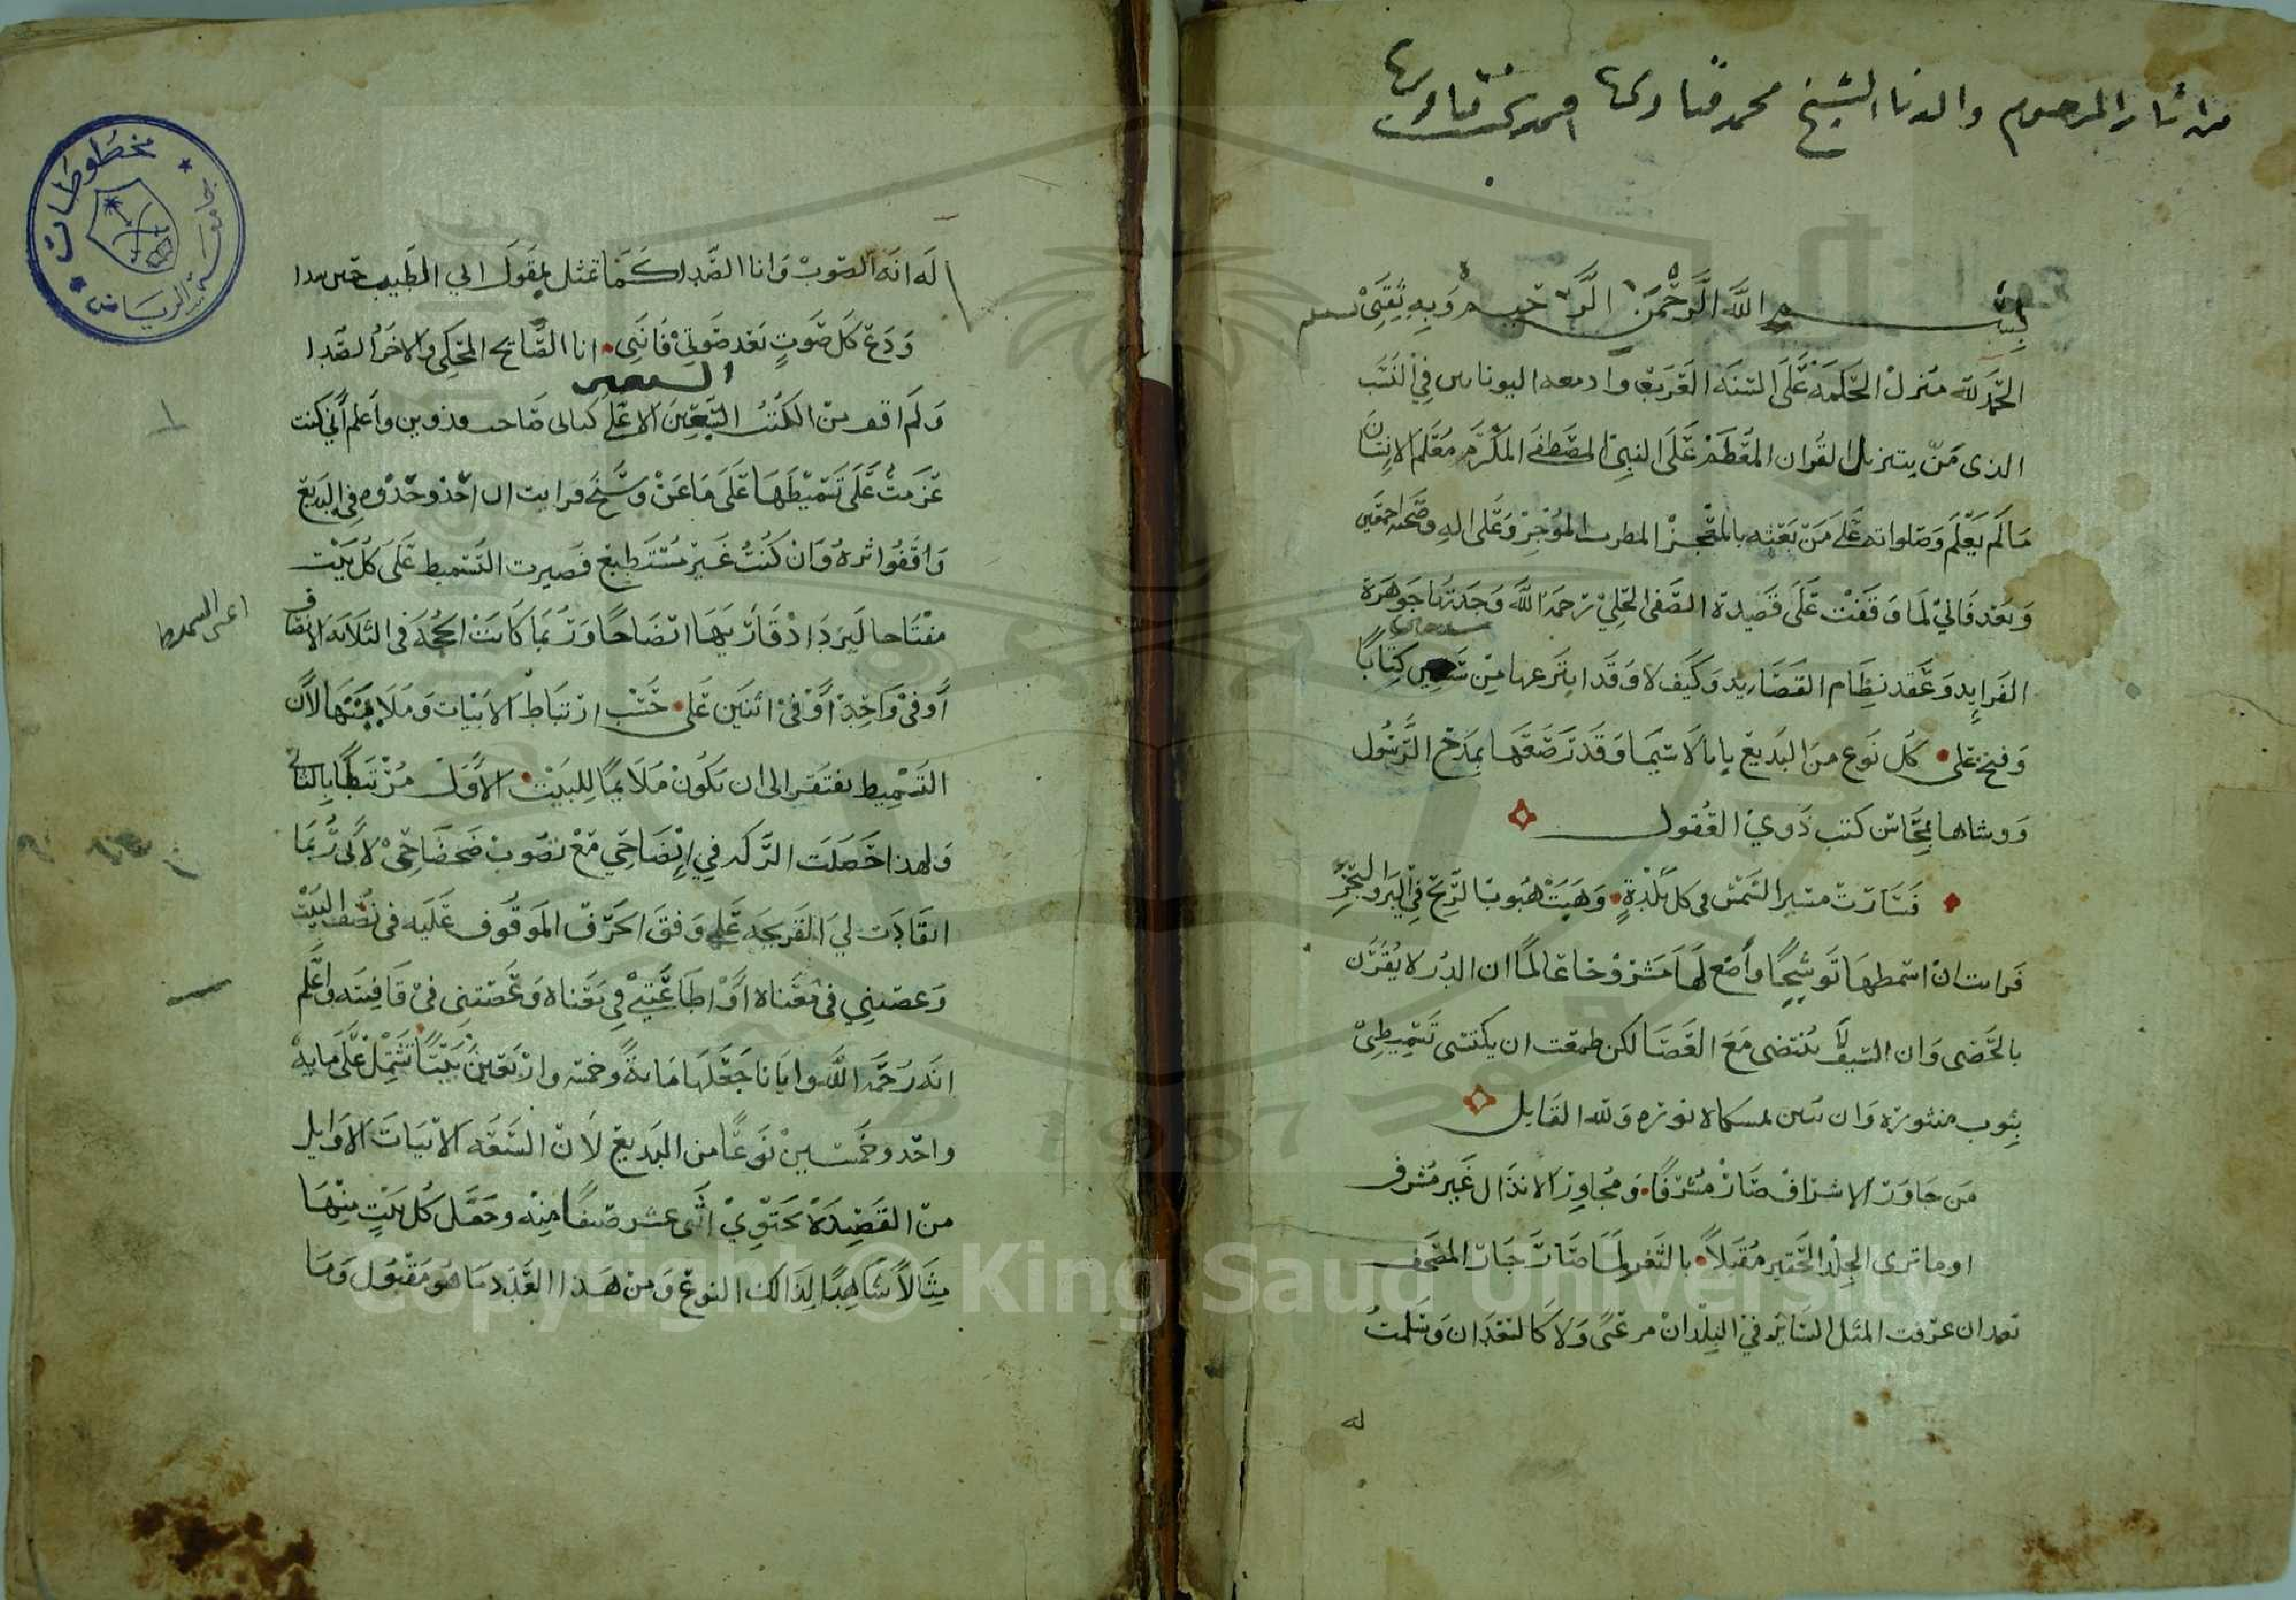 من اثار المرحوم والدنا الشيخ محمد
بسم الله الرحمن الرحيم وبه ثقتي
الحمد لله منزل الحكمة على السنة العرب في النسب
الذي من بتنزيل القران المعظم على النبي المصطفى المكرم معلم الانسان
ما لم يعلم وصلواته على من بعثه بالمعجز المطرب الموجز وعلى اله وصحبه اجمعين
وبعد فاني لما وقفت على قصيدة الصفي الحلي رحمه الله وجدتها جوهرة
الفرايد وعقد نظام القصايد وكيف لا وقد انتزعها من كتابا
وفتح على كل نوع من البديع بابا لا سيما وقد رصعها بمدح الرسول
ووشاها بمحاسن كتب ذوي العقول
فسارت مسير الشمس في كل بلدة وهبت هبوب الريح في البر والبحر
فرايت ان اسمطها توشيحا واضع لها مشروحا عالما ان الدر لا يقرن
بالحصى وان السيف لا ينتضى مع العصا لكن طمعت ان يكتسى تسميطي
بثوب منثوره وان نوره ولله القايل
من جاور الاشراف صار مشرفا ومجاور الانذال غير مشرف
اوما ترى الجلد الحقير مقبلا بالثغر لما صار جار المصحف
بعد ان عرفت المثل الساير في البلدان مرعى ولا كالسعدان وسلمت
له
له انه الصوت وانا الصدا كما تمثل بقول ابي الطيب حين
ودع كل صوت بعد صوتي فانني انا الصايح المحكي والاخر الصدا
السبعين
ولم اقف من الكتب السبعين الا على واعلم اني كنت
عزمت على تسميطها على ما عن وسنح فرايت ان احذو حذوه في البديع
واقفوا اثره وان كنت غير مستطيع فصيرت التسميط على كل بيت
مفتاحا ليزداد قاريها اتضاحا وربما كانت الحجة في الثلاثة الانصاف
او في واحد او في اثنين على حسب ارتباط الابيات وملايمتها لان
التسميط يفتقر الى ان يكون ملايما للبيت الاول مرتبطا بالثاني
ولهذا حصلت في ايضاحي مع نضوب ضحضاحي لاني ربما
انقادت لي القريحة على وفق الحرف الموقوف عليه في نصف البيت
وعصتني في معناه او اطاعتني في معناه وعصتني في قافيته واعلم
انه رحمه الله وايانا جعلها ماية وخمسة واربعين بيتا تشتمل على ماية
واحد وخمسين نوعا من البديع لان السبعة الابيات الاوايل
من القصيدة تحتوي اثنى عشر صنفا منه وجعل كل بيت منها
مثالا شاهدا لذالك النوع ومن هذا العدد ما هو مقبول وما
مخطوطات
جامعة الرياض
1957
Copyright © King Saud University